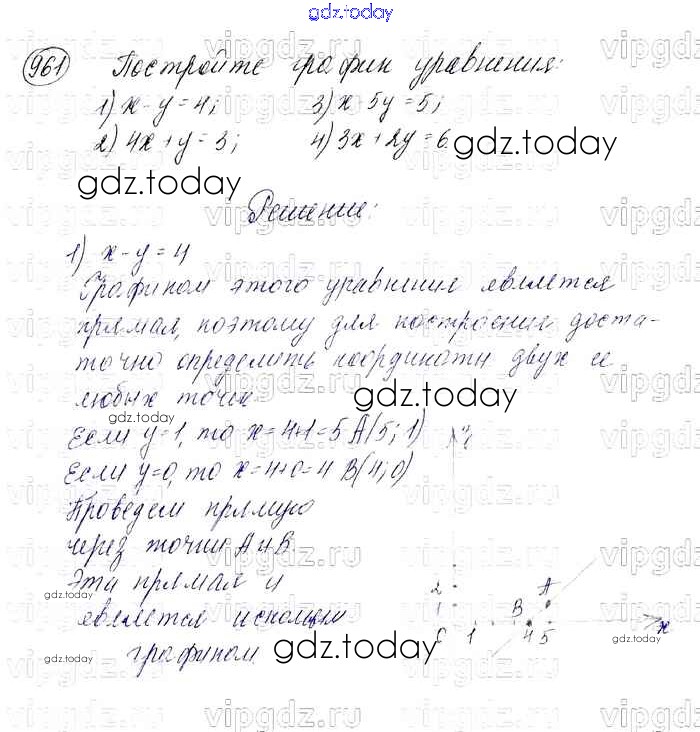 gdz.today
961 Постройте график уравнения:
1) x - y = 4; 3) x - 5y = 5;
2) 4x + y = 3; 4) 3x + 2y = 6.
gdz.today
gdz.today
Решение:
1) x - y = 4
Графиком этого уравнения является
прямая, поэтому для построения доста-
точно определить координаты двух ее
любых точек
gdz.today
gdz.today
Если y=1, то x=4+1=5 A(5; 1)
Если y=0, то x=4+0=4 B(4; 0)
Проведем прямую
через точки A и B.
Эта прямая и
является искомым
графиком.
y
2
1
0 1 B 4 5 A x
gdz.today
gdz.today
gdz.today
gdz.today
vipgdz.ru